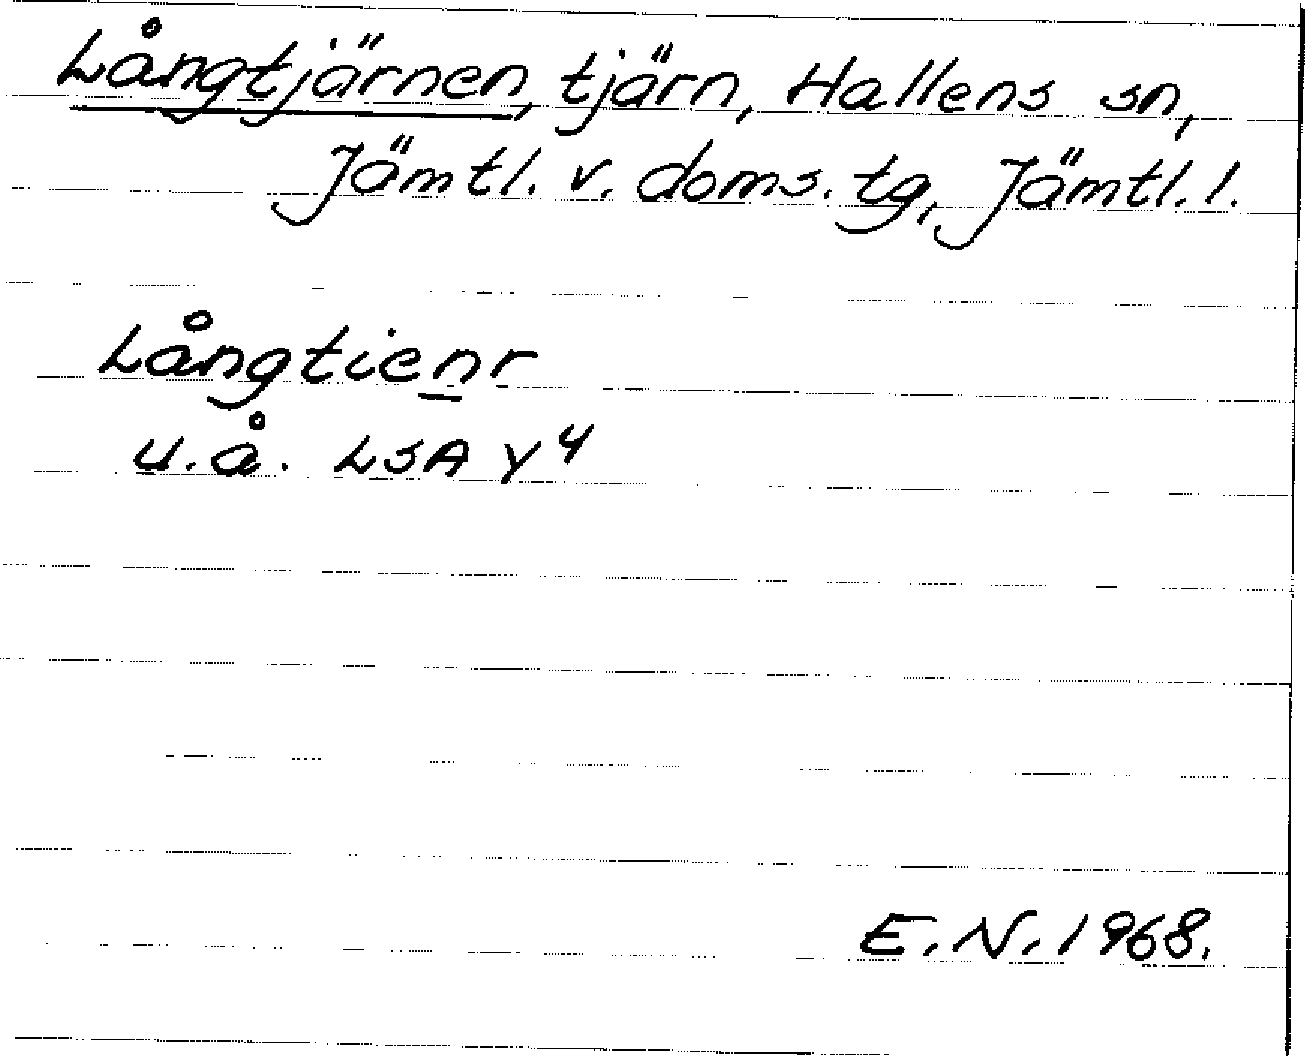 Långtjärnen, tjärn, Hallens sn,
Jämtl. v. doms. tg, Jämtl. l.
Långtienr
u.å. LSA Y4
E.N. 1968.